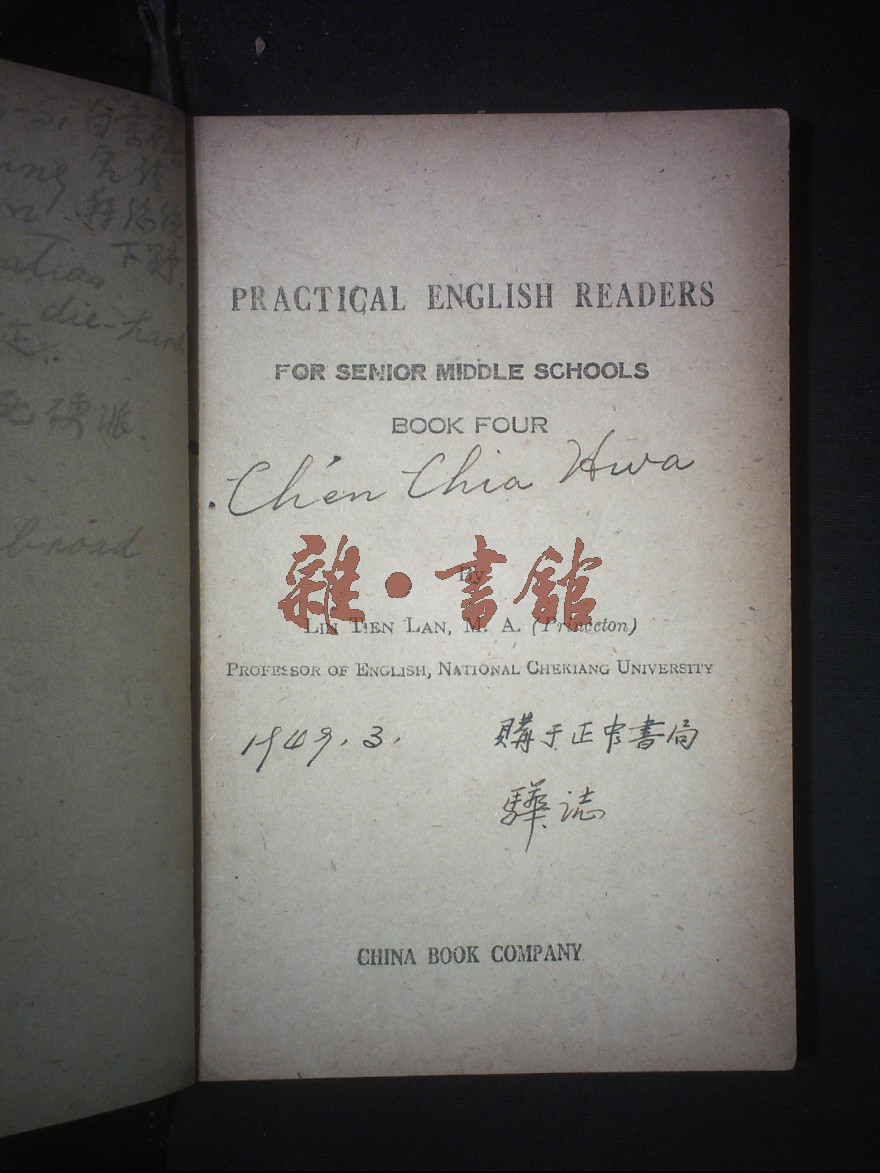 自
下野.
die-hard
死硬派.
broad
PRACTICAL ENGLISH READERS
FOR SENIOR MIDDLE SCHOOLS
BOOK FOUR
Ch'en Chia Hwa
雜·書館
By
LIN TIEN LAN, M. A. (Princeton)
PROFESSOR OF ENGLISH, NATIONAL CHEKIANG UNIVERSITY
1949.3. 購于正中書局
驊誌
CHINA BOOK COMPANY